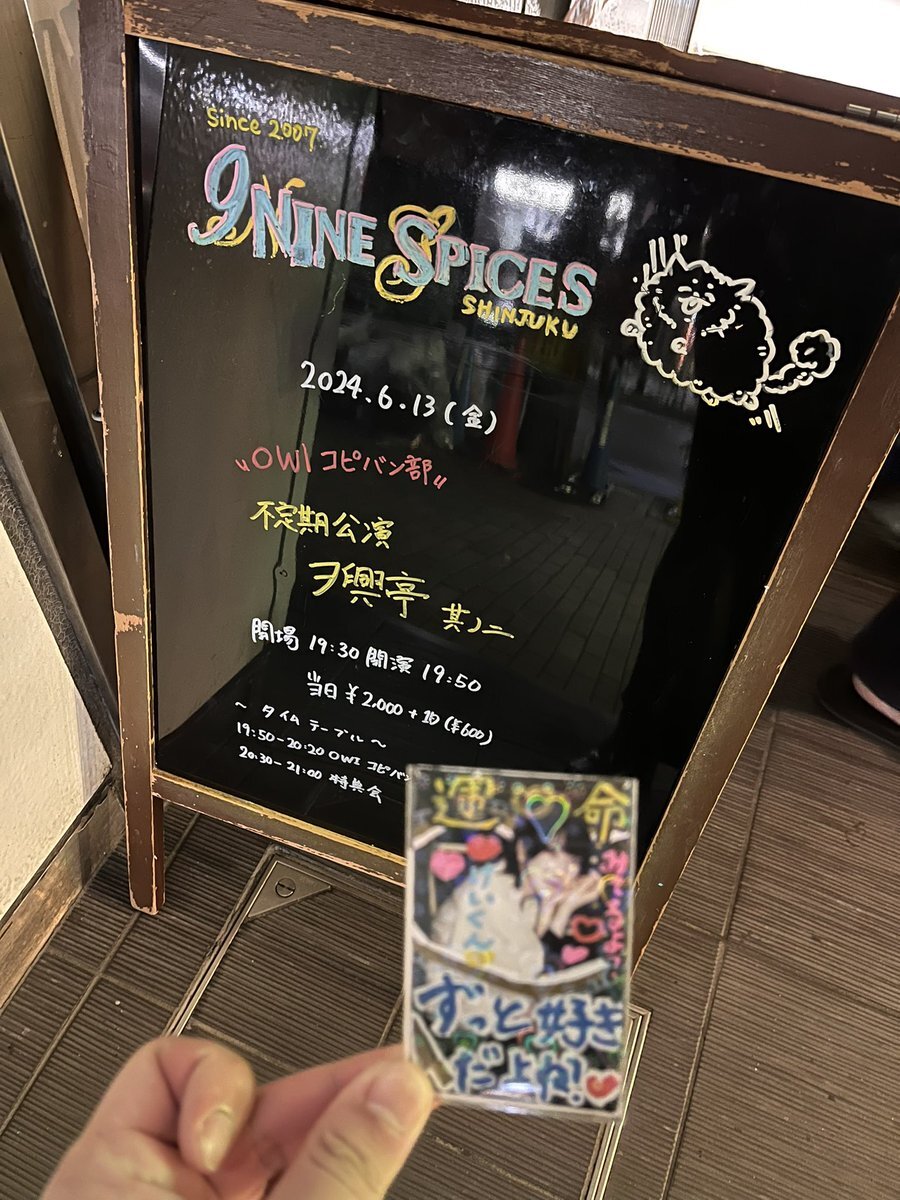 Since 2007
9 NINE SPICES
SHINJUKU
2024.6.13(金)
"OWI コピバン部"
不定期公演
ヲ興亭 其ノ二
開場 19:30 開演 19:50
当日 ¥2,000 + 1D (¥600)
~ タイムテーブル ~
19:50-20:20 OWI コピバン
20:30-21:00 特典会
運命
けいくん
ずっと好き
だよか!